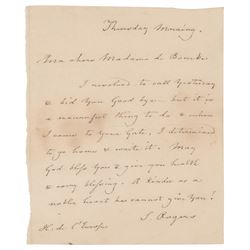 Thursday Morning.
Mia chere Madame de Bourke
I resolved to call Yesterday
& bid you Good bye — but it is
a mournful thing to do & when
I came to your Gate, I determined
to go home & write it. May
God bless you & give you health
& every blessing. A kinder & a
nobler heart he cannot give you!
S. Rogers
H. de l'Europe